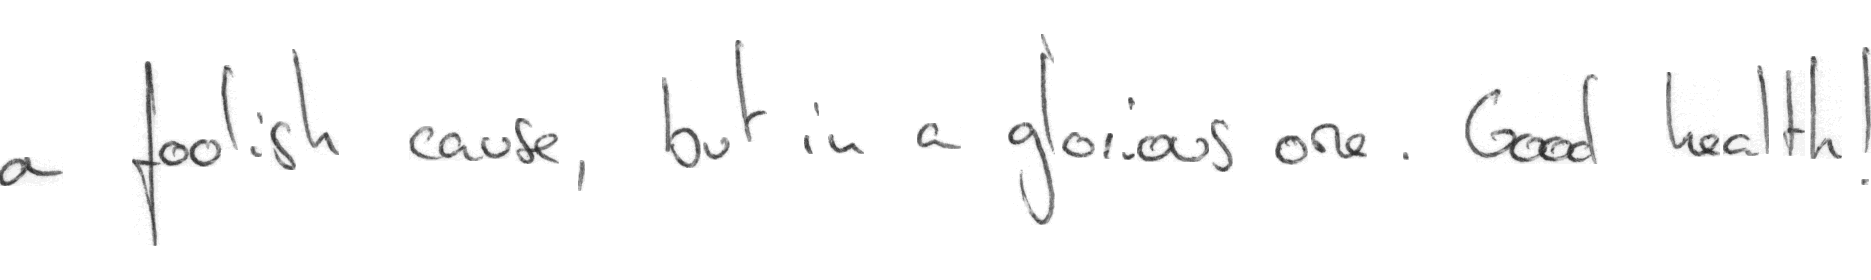 a foolish cause, but in a glorious one. Good health!